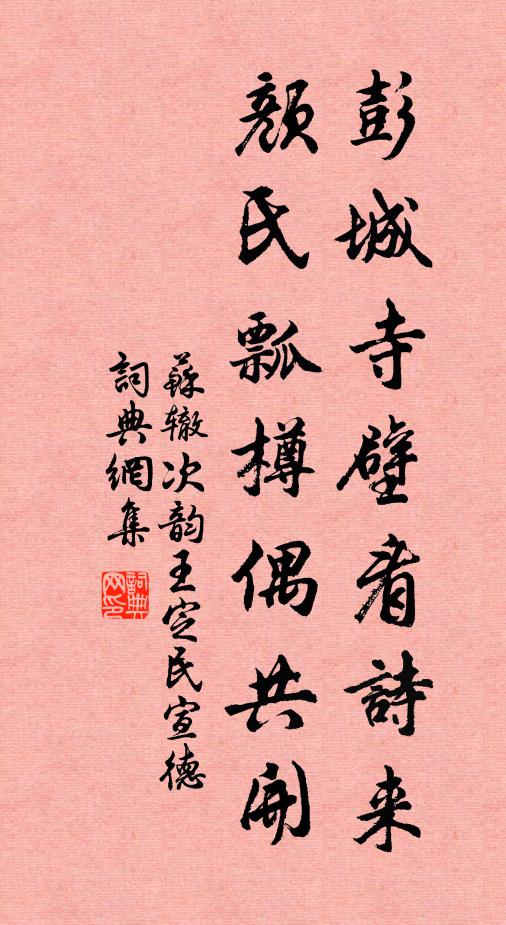 彭城寺壁看詩来
顏氏瓢樽偶共開
蘇辙次韵王定民宣德
詞典網集
詞典网印